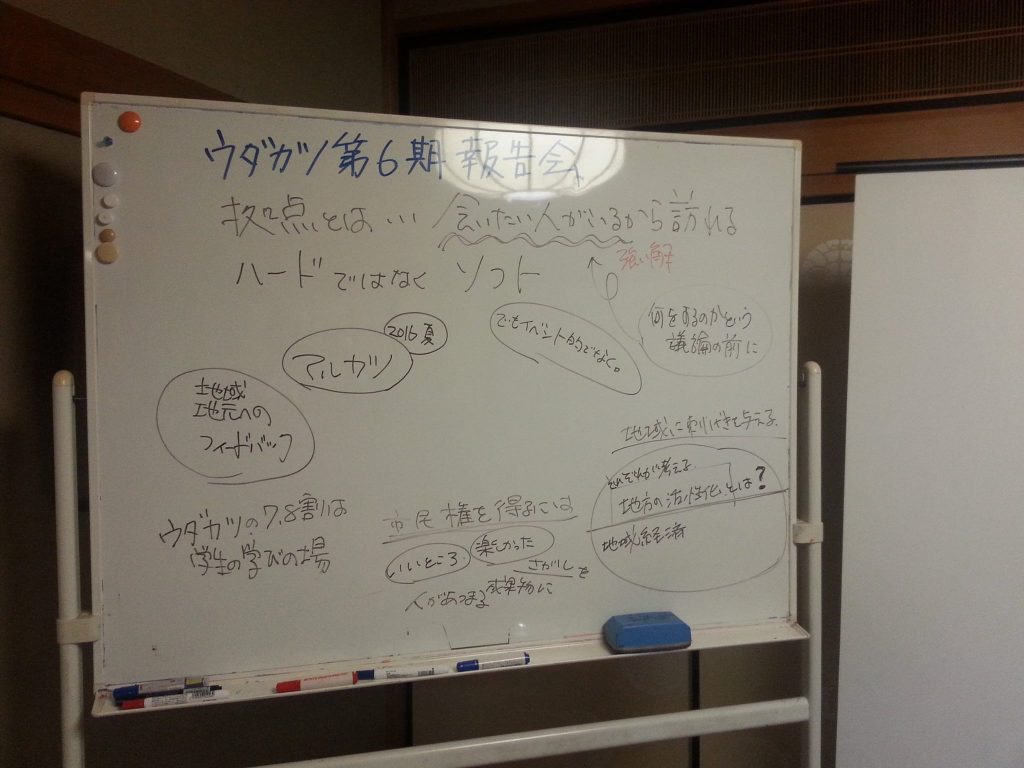 ウダガツ第6期 報告会
拠点とは… 会いたい人がいるから訪れる
ハードではなく ソフト
強い解
2016夏
アルガツ
でもイベント的でなく。
何をするのかという
議論の前に
地域
地元への
フィードバック
地域に刺げきを与える
それぞれが考える
地方の活性化とは?
地域経済
ウダガツの7,8割は
学生の学びの場
市民権を得るには
いいところ 楽しかった
さがしを
人があつまる 成果物に